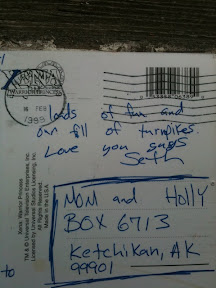 XENA
WARRIOR PRINCESS
16 FEB
1999
Loads of fun and
our fill of turnpikes.
Love you guys
Seth
Xena: Warrior Princess
TM & © Universal Television Enterprises, Inc.
Licensed by Universal Studios Licensing, Inc.
All Rights Reserved.
Made in the U.S.A.
MOM and HOLLY
BOX 6713
Ketchikan, AK
99901
to